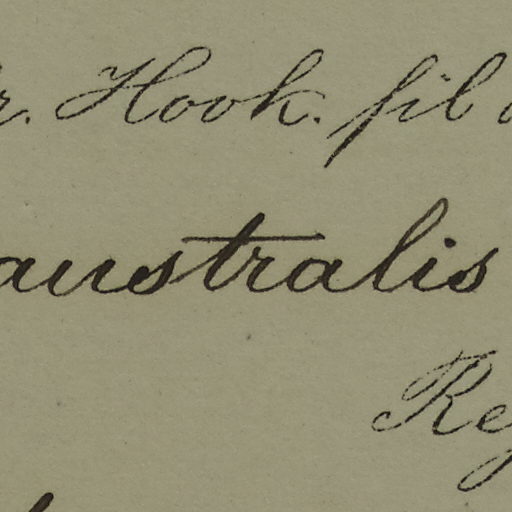 Hook. fil
australis